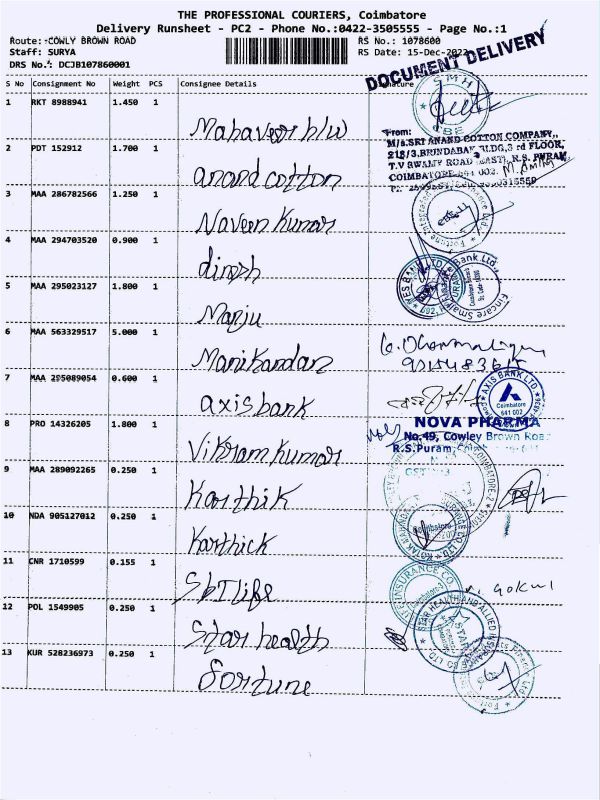 THE PROFESSIONAL COURIERS, Coimbatore
Delivery Runsheet - PC2 - Phone No.:0422-3505555 - Page No.:1
Route: COWLY BROWN ROAD RS No.: 1078600
Staff: SURYA RS Date: 15-Dec-2022
DRS No.: DCJB107860001
DOCUMENT DELIVERY
S No Consignment No Weight PCS Consignee Details Signature
1 RKT 8988941 1.450 1
Mahaveer h/w
SMH
From:
M/s.SRI ANAND COTTON COMPANY,
218/3, BRINDABAN BLDG, 3 rd FLOOR,
T.V SWAMY ROAD (EAST), R.S. PURAM,
COIMBATORE-641 002.
2 PDT 152912 1.700 1
anand cotton
3 MAA 286782566 1.250 1
Naveen Kumar
Fortune Integrated
4 MAA 294703520 0.900 1
dinesh
YES BANK LTD
Fincare Small Bank Ltd.
5 MAA 295023127 1.800 1
Manju
6 MAA 563329517 5.000 1
Manikandan
7 MAA 295089054 0.600 1
axis bank
AXIS BANK LTD.
Coimbatore
641 002
8 PRO 14326205 1.800 1
Vikram Kumar
NOVA PHARMA
No.49, Cowley Brown Road
R.S.Puram,
9 MAA 289092265 0.250 1
Karthik
COIMBATORE-2
10 NDA 905127012 0.250 1
Karthick
KOTAK MAHINDRA
Coimbatore
11 CNR 1710599 0.155 1
SbI life
LIFE INSURANCE CO
Gokul
12 POL 1549905 0.250 1
Star health
STAR HEALTH AND ALLIED INSURANCE CO LTD
STAR
13 KUR 528236973 0.250 1
Fortune